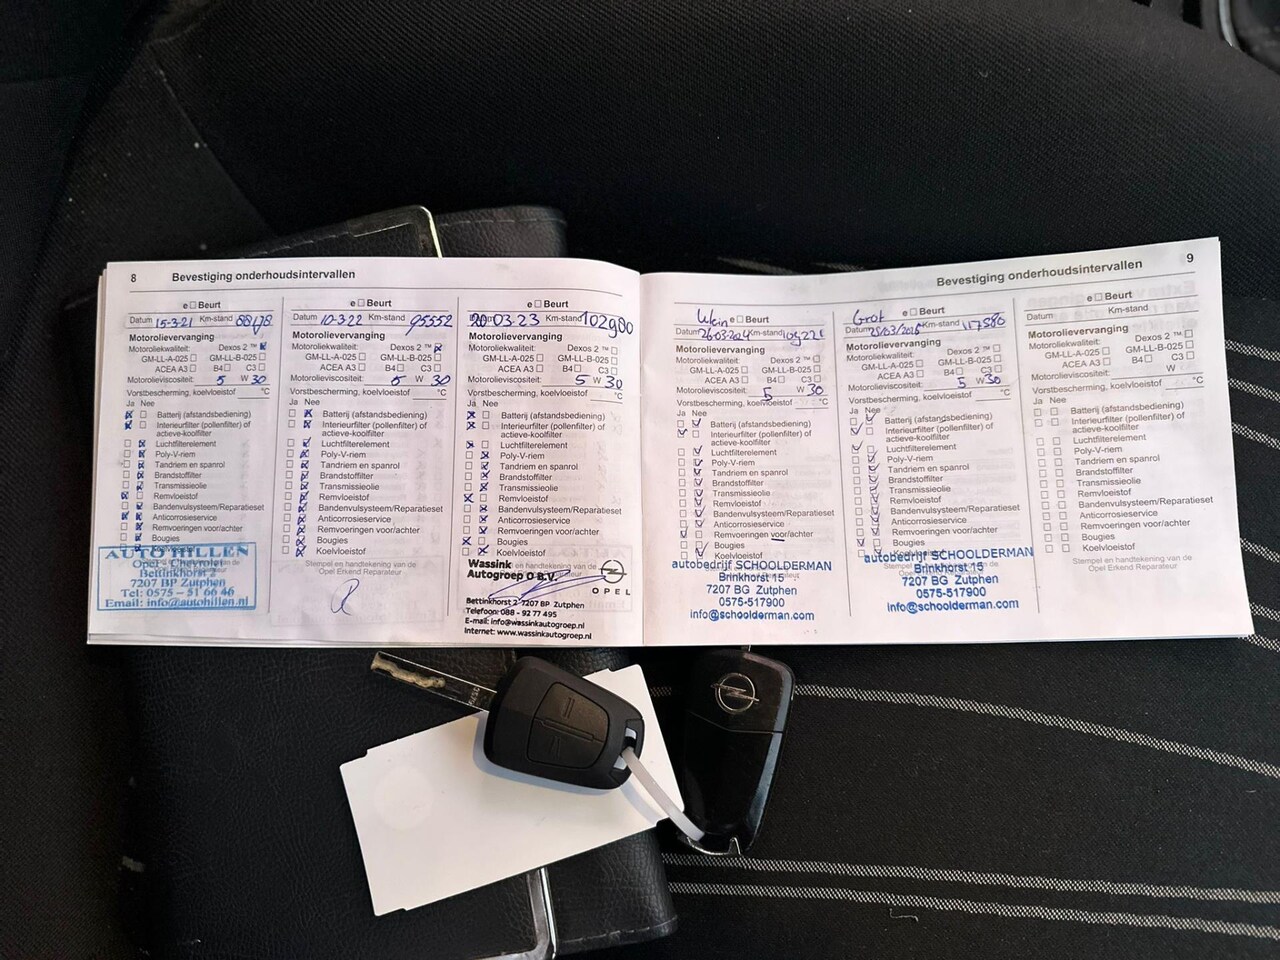 8 Bevestiging onderhoudsintervallen
e Beurt
Datum 15-3-21 Km-stand
Motorolievervanging
Motoroliekwaliteit: Dexos 2 ™
GM-LL-A-025 GM-LL-B-025
ACEA A3 B4 C3
Motorolieviscositeit: 5 W 30
Vorstbescherming, koelvloeistof °C
Ja Nee
Batterij (afstandsbediening)
Interieurfilter (pollenfilter) of
actieve-koolfilter
Luchtfilterelement
Poly-V-riem
Tandriem en spanrol
Brandstoffilter
Transmissieolie
Remvloeistof
Bandenvulsysteem/Reparatieset
Anticorrosieservice
Remvoeringen voor/achter
Bougies
AUTO HILLEN
Opel - Chevrolet
Bettinkhorst 2
7207 BP Zutphen
Tel: 0575 - 51 66 46
Email: info@autohillen.nl
e Beurt
Datum 10-3-22 Km-stand 95552
Motorolievervanging
Motoroliekwaliteit: Dexos 2 ™
GM-LL-A-025 GM-LL-B-025
ACEA A3 B4 C3
Motorolieviscositeit: 5 W 30
Vorstbescherming, koelvloeistof °C
Ja Nee
Batterij (afstandsbediening)
Interieurfilter (pollenfilter) of
actieve-koolfilter
Luchtfilterelement
Poly-V-riem
Tandriem en spanrol
Brandstoffilter
Transmissieolie
Remvloeistof
Bandenvulsysteem/Reparatieset
Anticorrosieservice
Remvoeringen voor/achter
Bougies
Koelvloeistof
Stempel en handtekening van de
Opel Erkend Reparateur
e Beurt
03.23 Km-stand 102980
Motorolievervanging
Motoroliekwaliteit: Dexos 2 ™
GM-LL-A-025 GM-LL-B-025
ACEA A3 B4 C3
Motorolieviscositeit: 5 W 30
Vorstbescherming, koelvloeistof °C
Ja Nee
Batterij (afstandsbediening)
Interieurfilter (pollenfilter) of
actieve-koolfilter
Luchtfilterelement
Poly-V-riem
Tandriem en spanrol
Brandstoffilter
Transmissieolie
Remvloeistof
Bandenvulsysteem/Reparatieset
Anticorrosieservice
Remvoeringen voor/achter
Bougies
Koelvloeistof
Wassink
Autogroep O B.V.
OPEL
Bettinkhorst 2 7207 BP Zutphen
Telefoon: 088 - 92 77 495
E-mail: info@wassinkautogroep.nl
Internet: www.wassinkautogroep.nl
Bevestiging onderhoudsintervallen 9
Klein e Beurt
Datum 26-03-2024 Km-stand
Motorolievervanging
Motoroliekwaliteit: Dexos 2 ™
GM-LL-A-025 GM-LL-B-025
ACEA A3 B4 C3
Motorolieviscositeit: 5 W 30
Vorstbescherming, koelvloeistof °C
Ja Nee
Batterij (afstandsbediening)
Interieurfilter (pollenfilter) of
actieve-koolfilter
Luchtfilterelement
Poly-V-riem
Tandriem en spanrol
Brandstoffilter
Transmissieolie
Remvloeistof
Bandenvulsysteem/Reparatieset
Anticorrosieservice
Remvoeringen voor/achter
Bougies
Koelvloeistof
autobedrijf SCHOOLDERMAN
Brinkhorst 15
7207 BG Zutphen
0575-517900
info@schoolderman.com
Grot e Beurt
Datum Km-stand 117580
Motorolievervanging
Motoroliekwaliteit: Dexos 2 ™
GM-LL-A-025 GM-LL-B-025
ACEA A3 B4 C3
Motorolieviscositeit: 5 W 30
Vorstbescherming, koelvloeistof °C
Ja Nee
Batterij (afstandsbediening)
Interieurfilter (pollenfilter) of
actieve-koolfilter
Luchtfilterelement
Poly-V-riem
Tandriem en spanrol
Brandstoffilter
Transmissieolie
Remvloeistof
Bandenvulsysteem/Reparatieset
Anticorrosieservice
Remvoeringen voor/achter
Bougies
autobedrijf SCHOOLDERMAN
Brinkhorst 15
7207 BG Zutphen
0575-517900
info@schoolderman.com
e Beurt
Datum Km-stand
Motorolievervanging
Motoroliekwaliteit: Dexos 2 ™
GM-LL-A-025 GM-LL-B-025
ACEA A3 B4 C3
Motorolieviscositeit: W
Vorstbescherming, koelvloeistof °C
Ja Nee
Batterij (afstandsbediening)
Interieurfilter (pollenfilter) of
actieve-koolfilter
Luchtfilterelement
Poly-V-riem
Tandriem en spanrol
Brandstoffilter
Transmissieolie
Remvloeistof
Bandenvulsysteem/Reparatieset
Anticorrosieservice
Remvoeringen voor/achter
Bougies
Koelvloeistof
Stempel en handtekening van de
Opel Erkend Reparateur